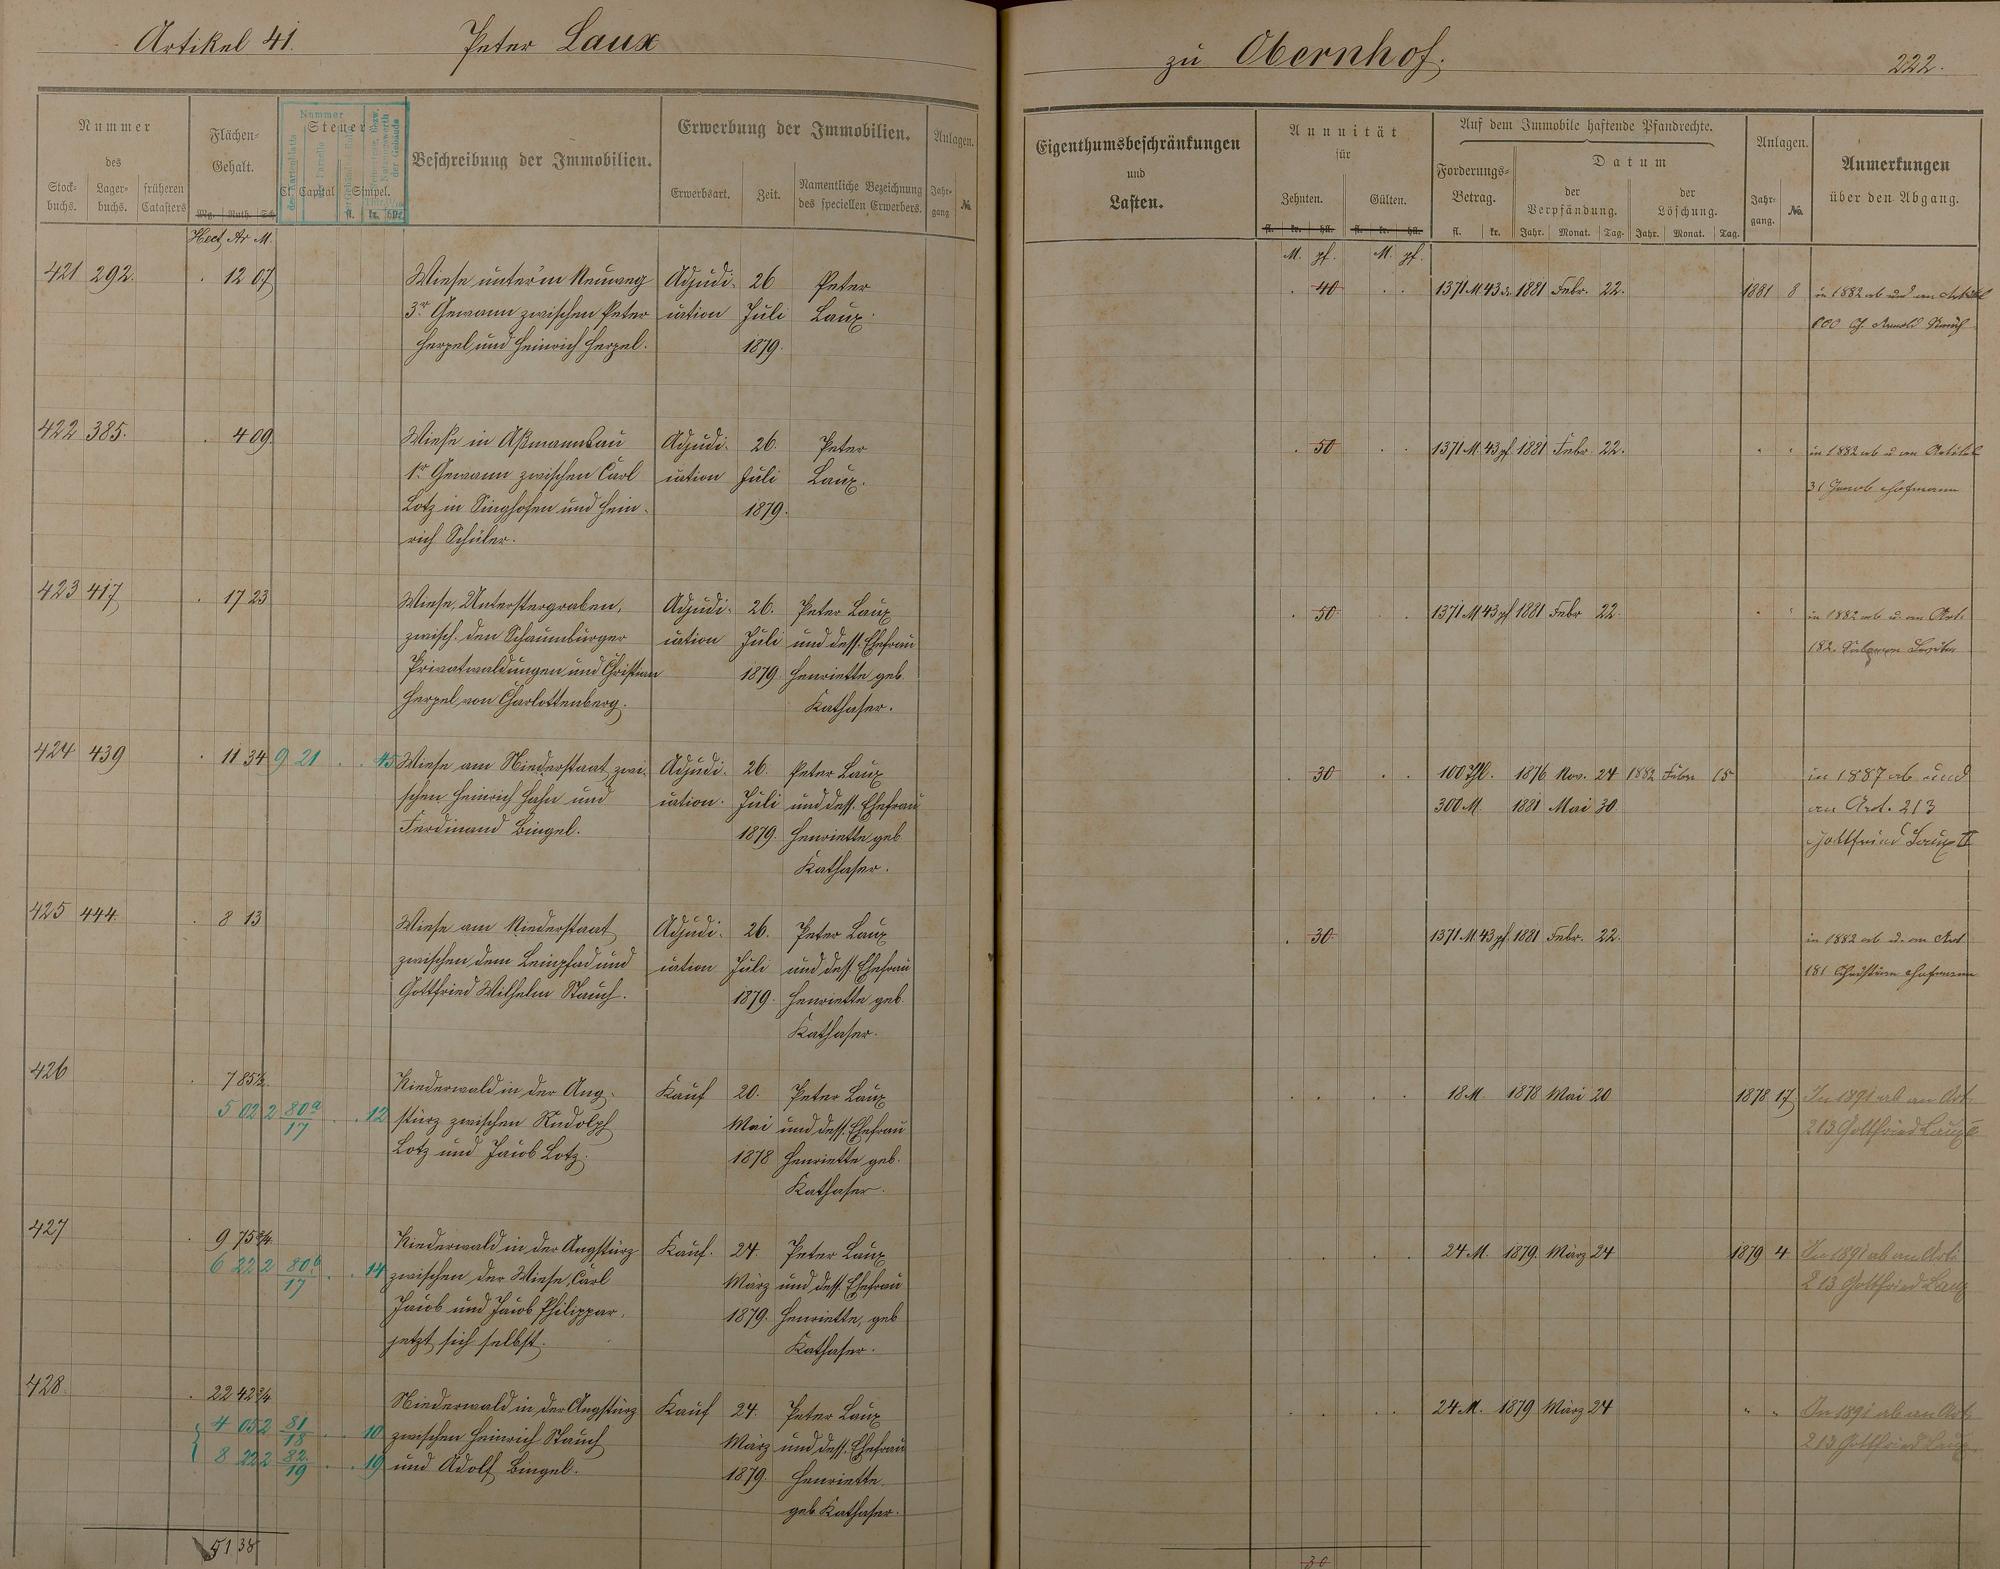 Artikel 41.
Peter Laux
zu Obernhof.
222.
Nummer
des
Stock-
buchs.
Lager-
buchs.
früheren
Catasters
Flächen-
Gehalt.
Mg. Ruth. Sch.
Hect. Ar M.
Steuer-
Cl. Capital
Simpel.
fl. kr. hll.
Nummer
des Kartenblatts
der Parcelle
Beschreibung der Immobilien.
Erwerbung der Immobilien.
Erwerbsart.
Zeit.
Namentliche Bezeichnung
des speciellen Erwerbers.
Anlagen.
Jahr-
gang
No.
Eigenthumsbeschränkungen
und
Lasten.
Annuität
für
Zehnten.
Gülten.
fl. kr. hll.
fl. kr. hll.
M. pf.
M. pf.
Auf dem Immobile haftende Pfandrechte.
Forderungs-
Betrag.
fl. kr.
Datum
der
Verpfändung.
der
Löschung.
Jahr. Monat. Tag.
Jahr. Monat. Tag.
Anlagen.
Jahr-
gang.
No.
Anmerkungen
über den Abgang.
421 292. 12 07
Wiese unter'm Neuweg
3r Gewann zwischen Peter
Herpel und Heinrich Herpel.
Adjudi-
cation
26
Juli
1879.
Peter
Laux.
40
1371 M. 43 1881 Febr. 22.
1881 8
in 1882 ab und an Artikel
600 Arnold Stauch
422 385. 4 09.
Wiese in Aßmannsau
1r Gewann zwischen Carl
Lotz in Singhofen und Hein-
rich Schüler.
Adjudi-
cation
26.
Juli
1879.
Peter
Laux.
50
1371 M. 43 pf. 1881 Febr. 22.
in 1882 ab u an Artikel
31 Jacob Hofmann
423 417 17 23
Wiese, Unterstergraben,
zwisch. den Schaumburger
Privatwaldungen und Christian
Herpel, von Charlottenberg.
Adjudi-
cation
26.
Juli
1879.
Peter Laux
und dess. Ehefrau
Henriette geb.
Kathaser.
50
1371 M 43 pf 1881 Febr 22.
in 1882 ab u. an Art.
182. Salomon
424 439 11 34 9 21 45
Wiese am Niederstaat zwi-
schen Heinrich Hahn und
Ferdinand Bingel.
Adjudi-
cation.
26.
Juli
1879.
Peter Laux
und dess. Ehefrau
Henriette geb.
Kathaser.
30
100 Thl. 1876 Nov. 24 1882 Febr 15
300 M. 1881 Mai 30
in 1887 ab und
an Art. 213
Gottfried Laux II
425 444. 8 13
Wiese am Niederstaat
zwischen dem Leinpfad und
Gottfried Wilhelm Stauch.
Adjudi-
cation
26.
Juli
1879.
Peter Laux
und dess. Ehefrau
Henriette geb.
Kathaser.
30
1371 M. 43 pf. 1881 Febr. 22.
in 1882 ab u. an Art
181 Christian Hofmann
426 7 85½
5 02 2 80a/17 12
Niederwald in der Ang-
stürz zwischen Rudolph
Lotz und Jacob Lotz.
Kauf
20.
Mai
1878
Peter Laux
und dess. Ehefrau
Henriette geb.
Kathaser.
18 M. 1878 Mai 20
1878 17
In 1891 ab an Art.
213 Gottfried Laux II
427 9 75¾
6 22 2 80b/17 14
Niederwald in der Angstürz
zwischen der Wiese, Carl
Jacob und Jacob Philippar.
jetzt sich selbst.
Kauf.
24.
März
1879.
Peter Laux
und dess. Ehefrau
Henriette, geb
Kathaser.
24 M. 1879. März 24
1879 4
In 1891 ab an Art.
213 Gottfried Laux
428. 22 42¾
4 05 2 81/18 10
8 22 2 82/19 19
Niederwald in der Angstürz
zwischen Heinrich Stauch
und Adolf Bingel.
Kauf
24.
März
1879.
Peter Laux
und dess. Ehefrau
Henriette
geb. Kathaser.
24 M. 1879 März 24
In 1891 ab an Art.
213 Gottfried Laux
51 38
30